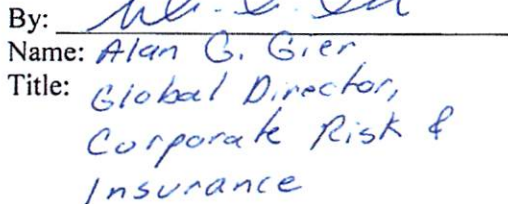 By:
Name: Alan G. Gier
Title: Global Director,
Corporate Risk &
Insurance